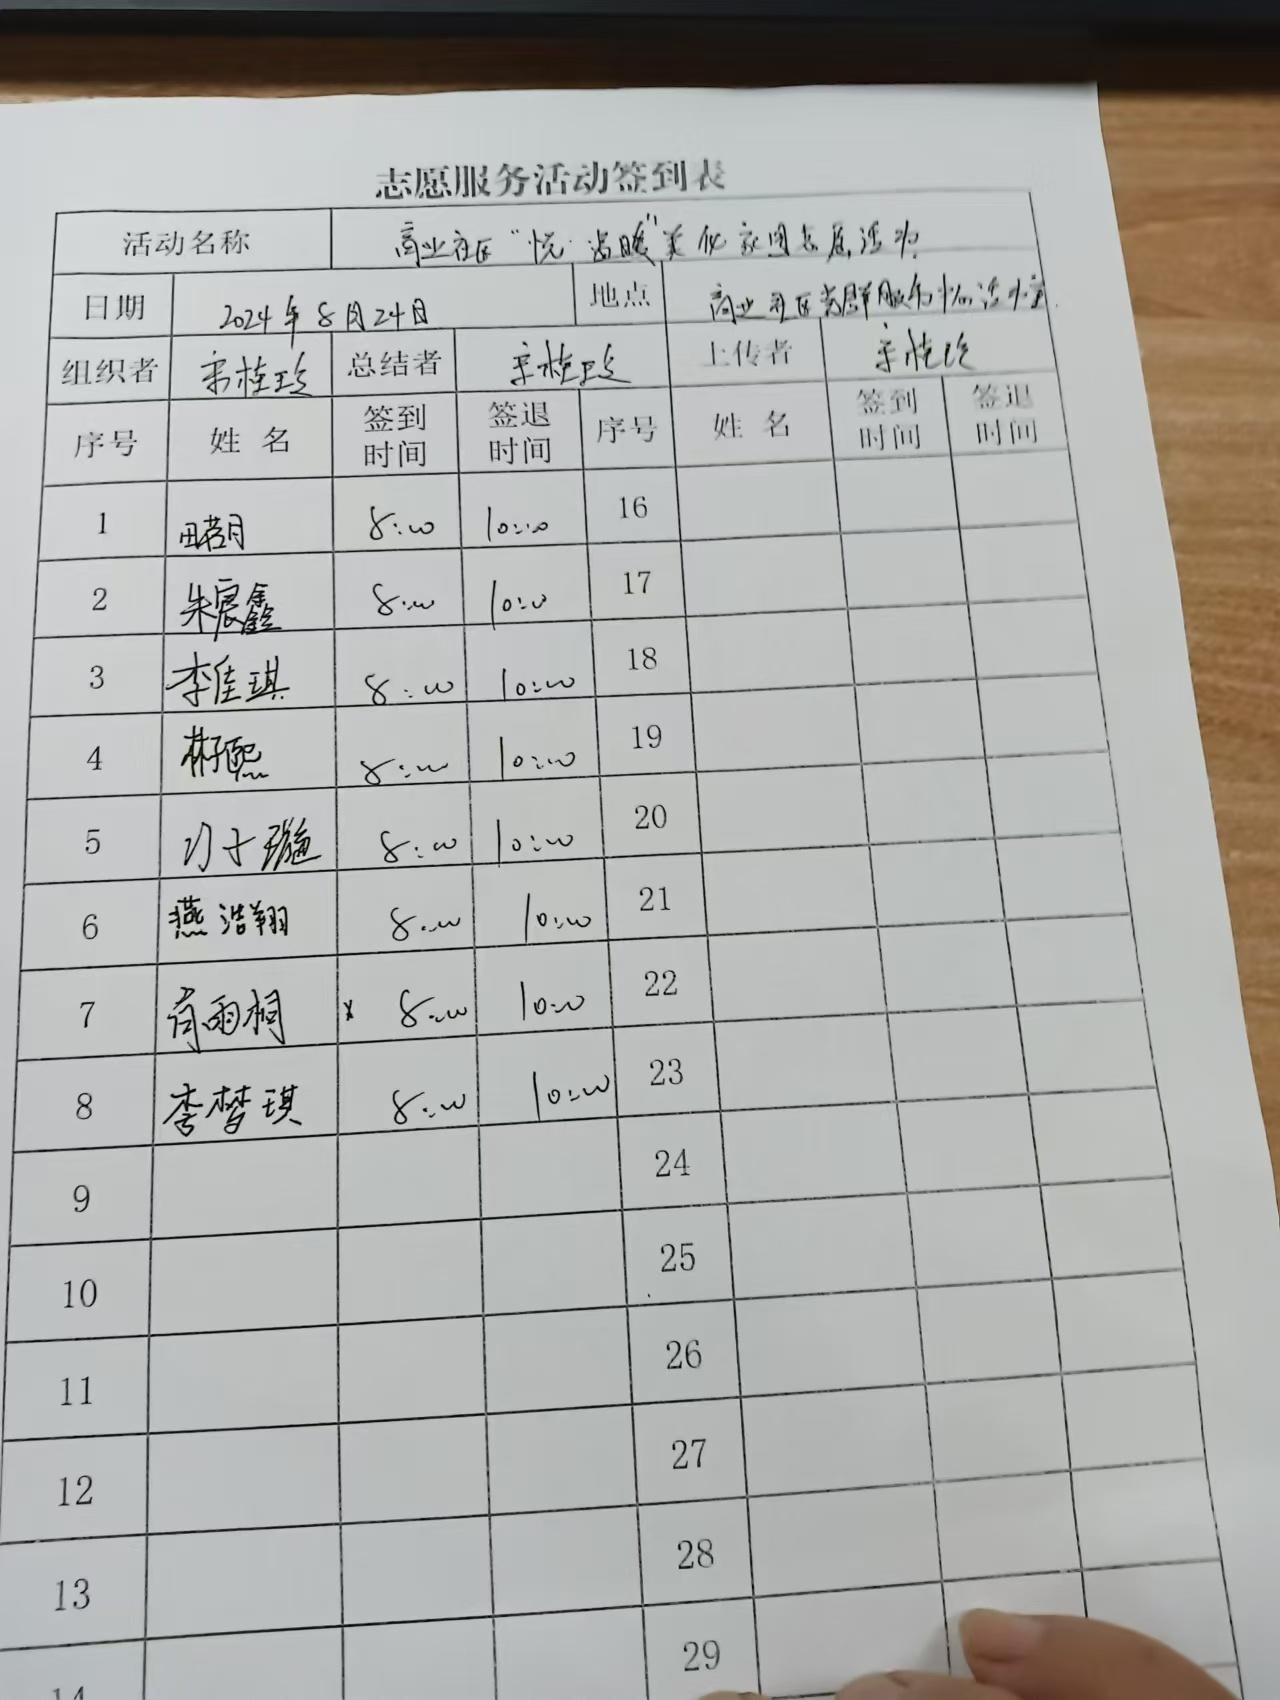 志愿服务活动签到表
活动名称 商业社区"悦· 暖"美化家园志愿活动
日期 2024年8月24日 地点 商业社区党群服务中心活动室
组织者 宋桂玲 总结者 宋桂玲 上传者 宋桂玲
序号 姓名 签到时间 签退时间 序号 姓名 签到时间 签退时间
1 8:00 10:00 16
2 朱宸鑫 8:00 10:00 17
3 李佳琪 8:00 10:00 18
4 林子熙 8:00 10:00 19
5 8:00 10:00 20
6 燕浩翔 8:00 10:00 21
7 苟雨桐 x 8:00 10:00 22
8 李梦琪 8:00 10:00 23
9 24
10 25
11 26
12 27
13 28
14 29